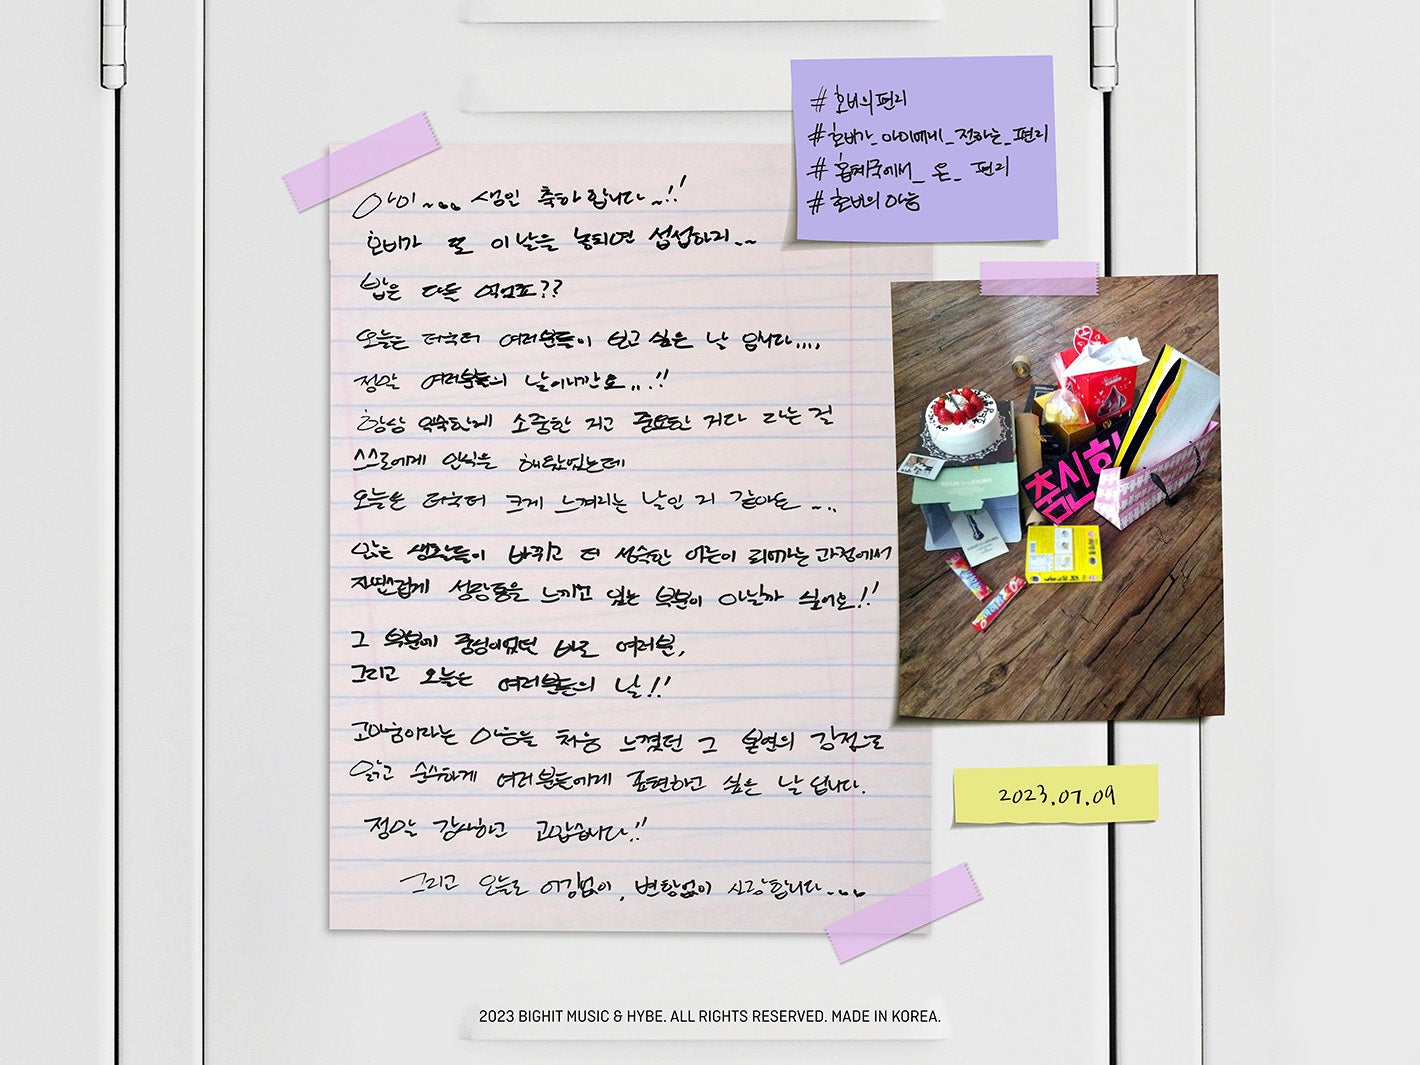 아미~... 생일 축하합니다~!!
호비가 또 이날을 놓치면 섭섭하지~~
밥은 다들 먹었죠??
오늘은 더욱더 여러분들이 보고 싶은 날 입니다....
정말 여러분들의 날이니깐요...!!
항상 익숙한게 소중한 거고 중요한 거다 라는 걸
스스로에게 인식을 해왔었는데
오늘은 더욱더 크게 느껴지는 날인 거 같아요 ~..
많은 생활들이 바뀌고 더 성숙한 어른이 되어가는 과정에서
자연스럽게 성장통을 느끼고 있는 부분이 아닐까 싶어요!!
그 부분에 중심이었던 바로 여러분,
그리고 오늘은 여러분들의 날!!
고마움이라는 마음을 처음 느꼈던 그 본연의 감정으로
맑고 순수하게 여러분들에게 표현하고 싶은 날 입니다.
정말 감사하고 고맙습니다!!
그리고 오늘도 어김없이, 변함없이 사랑합니다~...
#호비의편지
#호비가_아미에게_전하는_편지
#홉체국에서_온_편지
#호비의마음
TOUS les JOURS
춤신
2023.07.09
2023 BIGHIT MUSIC & HYBE. ALL RIGHTS RESERVED. MADE IN KOREA.